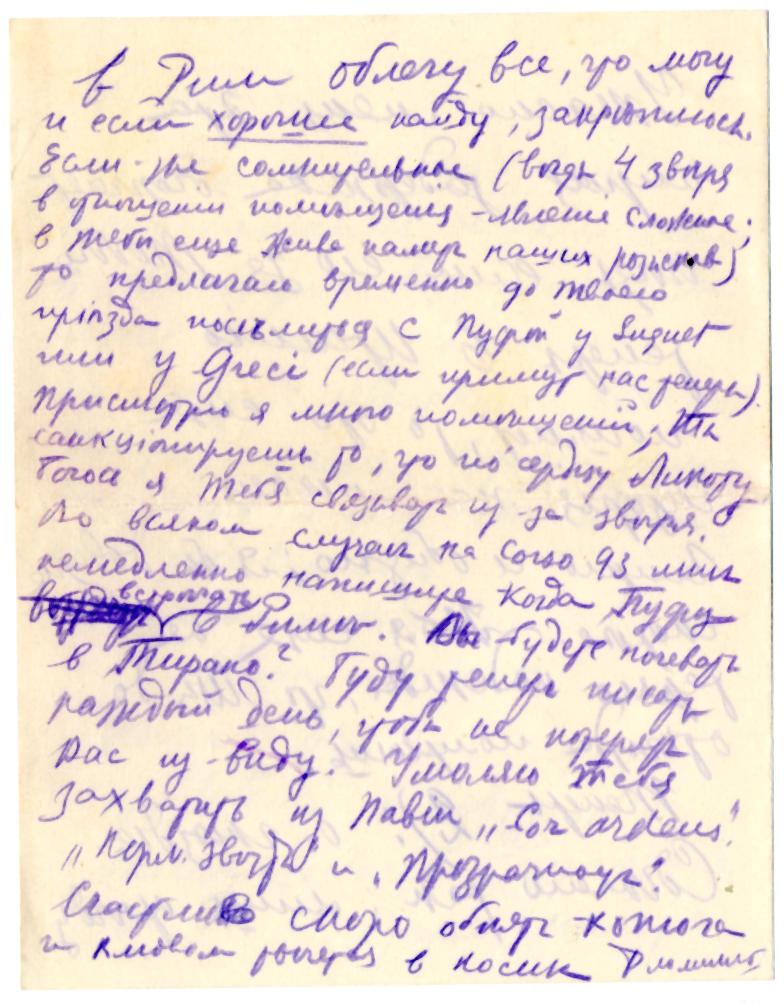 в Риме облечу все, что могу
и если хорошие найду, закреплюсь.
Если же сомнительные (ведь 4 зверя
в отношении помещения - явление сложное;
в Тебе еще жива память наших розысков)
то предлагаю временно до твоего
приезда поселиться с у Signet
или у Greci (если примут нас теперь).
Присмотрю я много помещений; Ты
санкционируешь то, что по сердцу
Боюсь я Тебя связывать из-за зверя.
Во всяком случае на Corso 93 мне
немедленно напишите когда
встречать в Риме. Вы будете ночевать
в Тирано? Буду теперь писать
каждый день, чтобы не потерять
Вас из виду. Умоляю Тебя
захватить из Павии „Cor ardens",
„Корм. звезды" и „Прозрачность".
скоро обнять
и в носик